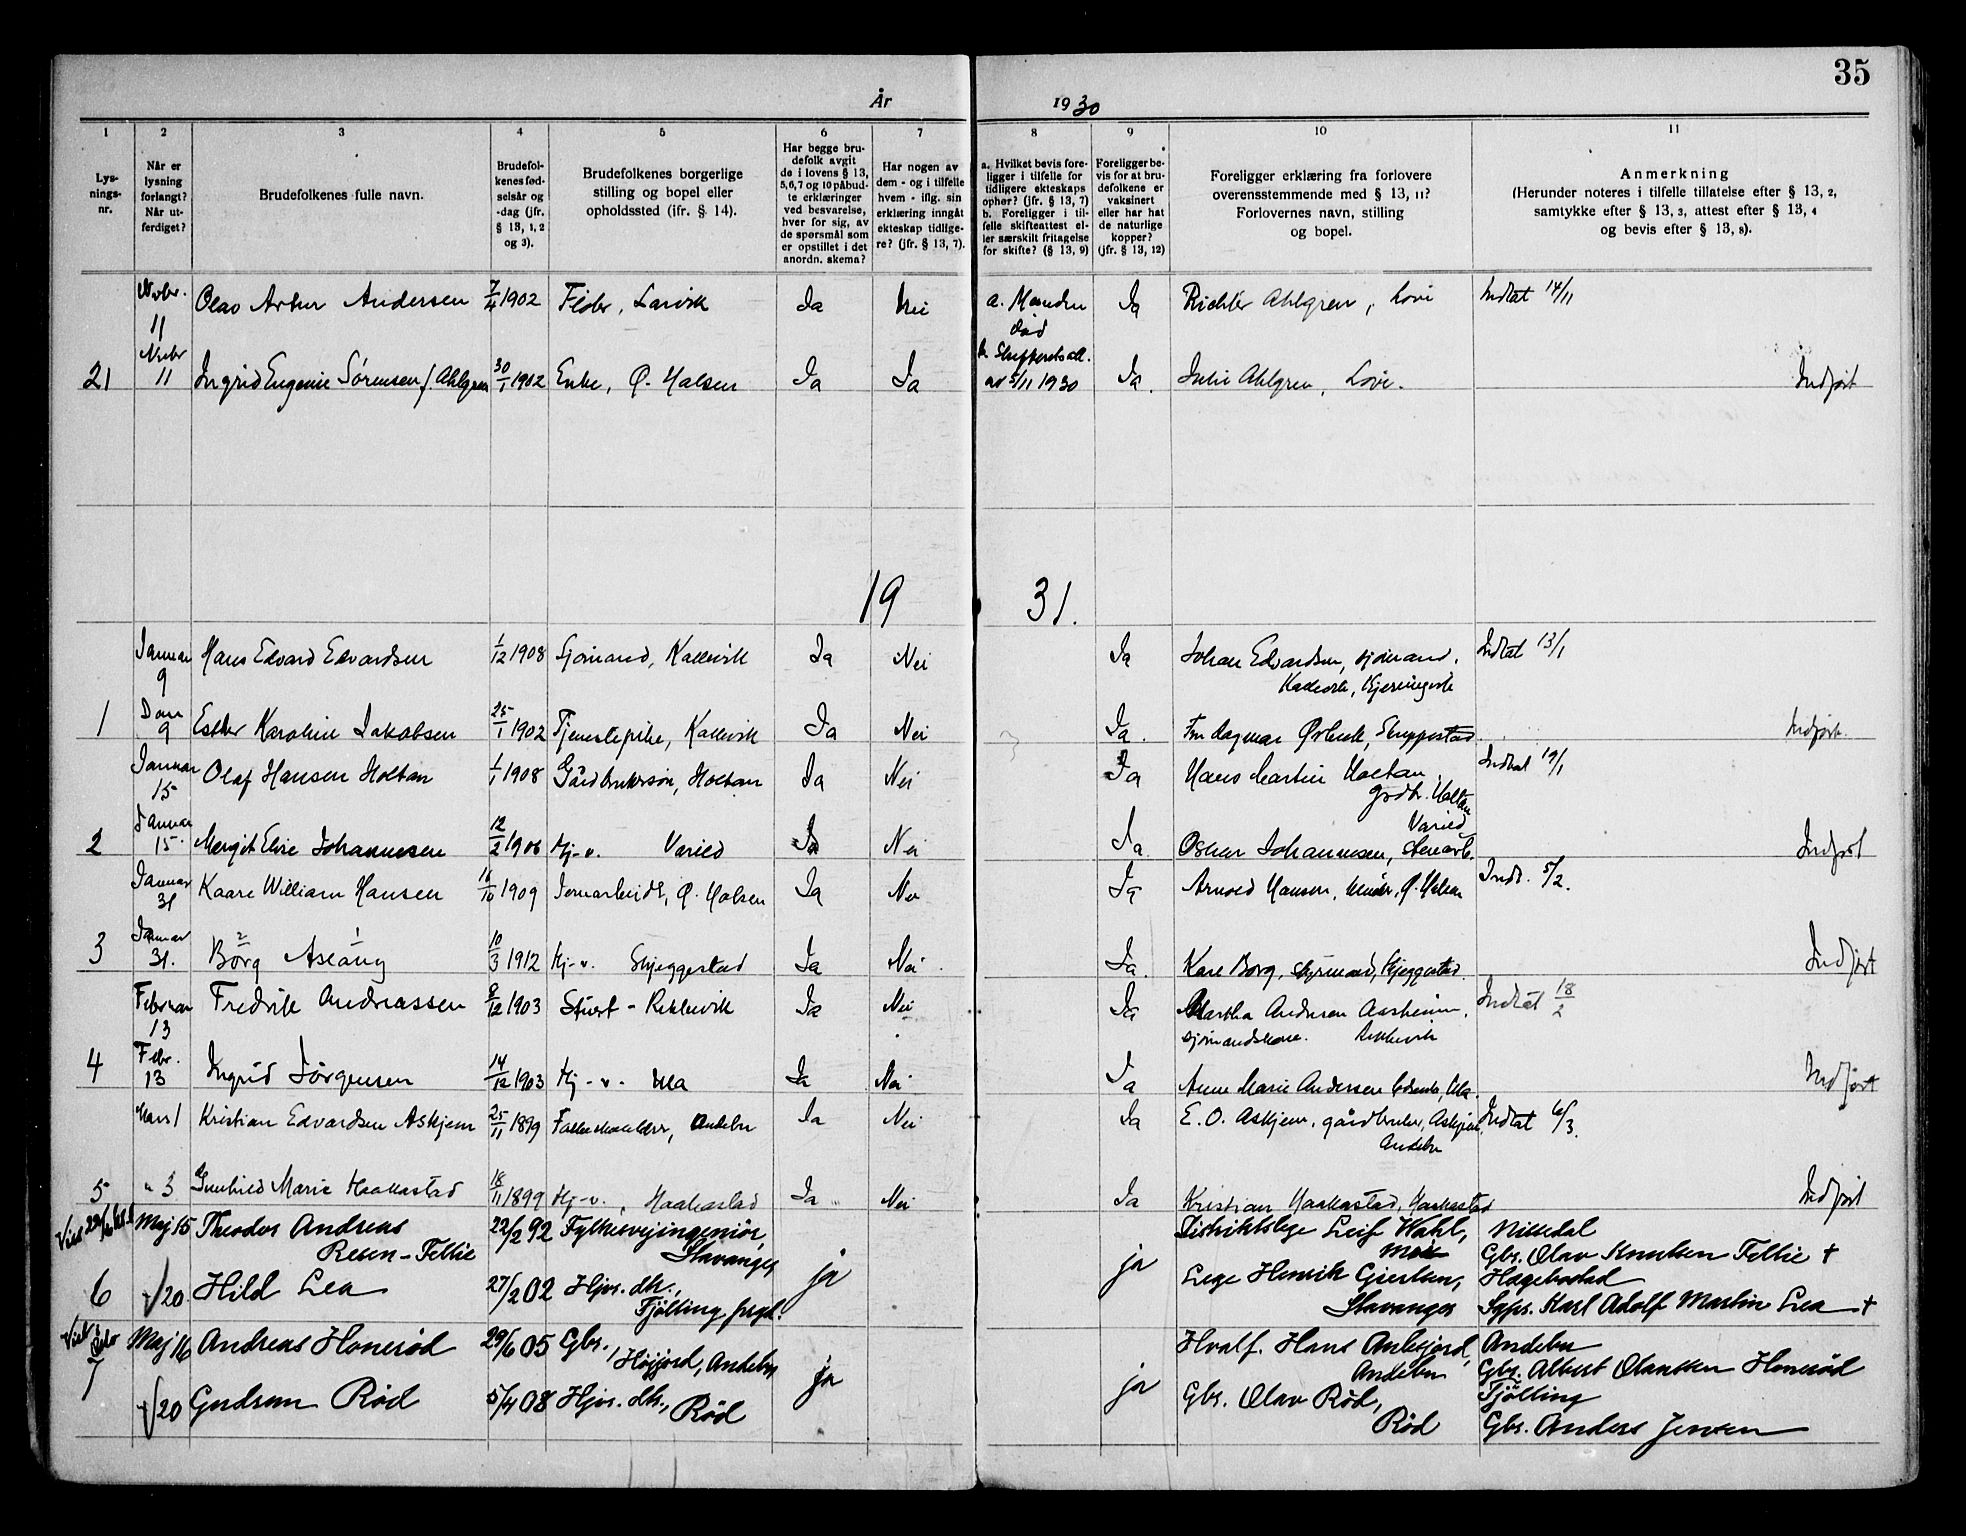 35
År 1930
1
2
3
4
5
6
7
8
9
10
11
Lys-
nings-
nr.
Når er
lysning
forlangt?
Når ut-
ferdiget?
Brudefolkenes fulle navn.
Brudefol-
kenes fød-
selsår og
-dag (jfr.
§ 13, 1, 2
og 3).
Brudefolkenes borgerlige
stilling og bopel eller
opholdssted (ifr. § 14).
Har begge bru-
defolk avgit
de i lovens § 13,
5, 6, 7 og 10 påbud-
te erklæringer
ved besvarelse,
hver for sig, av
de spørsmål som
er opstillet i det
anordn. skema?
Har nogen av
dem - og i tilfelle
hvem - iflg. sin
erklæring inngått
ekteskap tidlige-
re? (jfr. § 13, 7).
a. Hvilket bevis fore-
ligger i tilfelle for
tidligere ekteskaps
ophør? (jfr. § 13, 7)
b. Foreligger i til-
felle skifteattest el-
ler særskilt fritagelse
for skifte? (§ 13, 9)
Foreligger be-
vis for at bru-
defolkene er
vaksinert
eller har hat
de naturlige
kopper?
(jfr. § 13, 12)
Foreligger erklæring fra forlovere
overensstemmende med § 13, 11?
Forlovernes navn, stilling
og bopel.
Anmerkning
(Herunder noteres i tilfelle tillatelse efter § 13, 2,
samtykke efter § 13, 3, attest efter § 13, 4
og bevis efter § 13, 8).
Novbr. 11 Olav Artur Andersen 7/4 1902 Larvik Ja Nei a. Manden død Ja Richter Ahlgren, Love Indtat 14/11
21 Novbr 11 Ingrid Eugenie Sørensen f. Ahlgren 30/1 1902 Enke, Ø. Halsen Ja Ja av 5/11 1930 Ja. Julie Ahlgren, Love. Indført
19 31.
Januar 9 Hans Edvard Edvardsen 1/12 1908 Sjømand, Kallevik Ja Nei Ja Johan Edvardsen, sjømand, Indtat 13/1
1 Jan 9 Esther Karoline Jakobsen 25/1 1902 Tjenestepike, Kallevik Ja Nei Ja. Fru Dagmar Indført.
Januar 15 Olaf Hansen Holtan 1/1 1908 Gårdbrukersøn, Holtan Ja Nei Ja Hans Martin Holtan grdbr. Holtan Indtat 19/1
2 Januar 15. Margit Elise Johannesen 12/2 1906 Hj-v. Varild Ja Nei Ja. Oskar Johannesen, Varild Indført
Januar 31 Kaare William Hansen 1909 Jernarbeider, Ø. Halsen Ja Nei Ja Arnold Hansen, Ø. Halsen Indt. 5/2.
3 Januar 31. Borg Aslaug 10/3 1912 Hj-v. Skjeggestad Ja Nei. Ja. Kare Borg, styrmand, Skjeggestad Indført
Februar 13 Fredrik Andreassen 8/12 1903 Stuert - Rekkevik Ja Nei Ja Martha Andersen Aasheim, sjømandskone. Rekkevik Indtat 18/2
4 Febr. 13 Ingrid Jørgensen 14/12 1903 Hj-v. Ula Ja Nei Ja Anne Marie Andersen Ula. Indført
Mars 1 Kristian Edvardsen Askjem 25/11 1899 Andebu Ja Nei Ja E. O. Askjem, gårdbruker, Askjem, Andebu Indtat 6/3.
5 " 3 Gunhild Marie Haakastad 18/11 1899 Hj-v., Haakastad Ja Nei Ja Kristian Haakastad, Haakastad Indført
Maj 15 Theodor Andreas Resen-Fellie 22/2 92 Fylkesvejingeniør, Stavanger ja ja Distriktslege Leif Wahl, Nissedal Gbr. Olav Knutsen Fellie +
6 /20 Hild Lea 27/2 02 Hjv. dtr., Fjølling prgd. Lege Henrik Giertsen, Stavanger Hægebostad Karl Adolf Martin Lea +
7 Maj 16 Andreas Honerød 29/6 05 Gbr., Høijord, Andebu ja ja Hvalf. Hans Andebu Andebu Gbr. Albert Olausson Honerød
/20 Gudrun Rød 5/4 08 Hjv. dtr., Rød Gbr. Olav Rød, Rød Tjølling Gbr. Anders Jensen